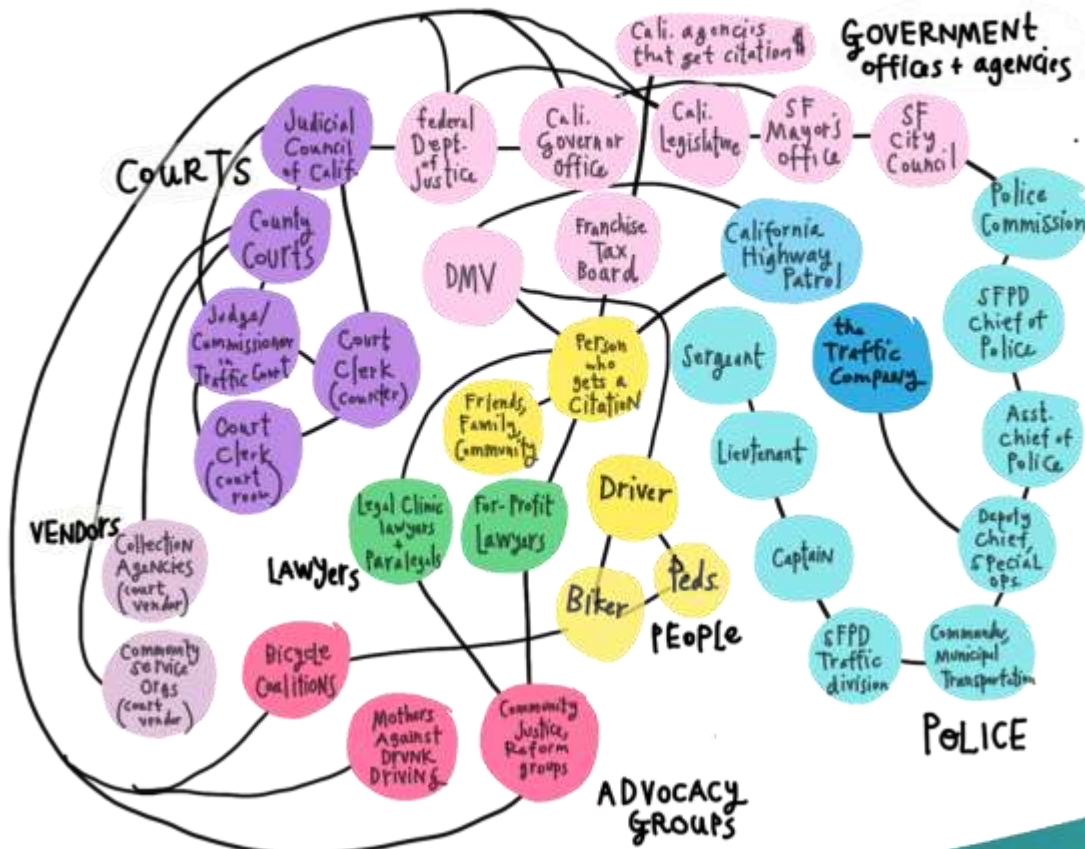 Cali. agencies
that get citation $
GOVERNMENT
offices + agencies
COURTS
Judicial
Council
of Calif.
federal
Dept.
of
Justice
Cali.
Governor
Office
Cali.
Legislature
SF
Mayor's
office
SF
City
Council
Police
Commission
County
Courts
DMV
Franchise
Tax
Board
California
Highway
Patrol
SFPD
Chief of
Police
Judge/
Commissioner
in
Traffic Court
Court
Clerk
(counter)
Person
who
gets a
Citation
Sergeant
the
Traffic
Company
Friends,
Family,
Community
Court
Clerk
(court
room)
Lieutenant
Asst.
Chief of
Police
VENDORS
Collection
Agencies
(court
vendor)
LAWYERS
Legal Clinic
lawyers
+
Paralegals
For-Profit
Lawyers
Driver
Captain
Deputy
Chief,
Special
ops.
Biker
Peds.
PEOPLE
Community
Service
Orgs
(court
vendor)
Bicycle
Coalitions
SFPD
Traffic
division
Commander,
Municipal
Transportation
POLICE
Mothers
Against
Drunk
Driving
Community
Justice,
Reform
groups
ADVOCACY
GROUPS